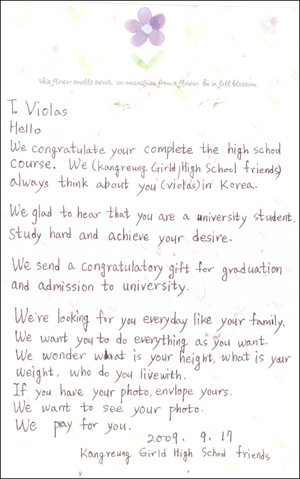 this flower smells sweet. an emanation from a flower. be in full blossom
T. Violas
Hello
We congratulate your complete the high school
course. We (Kangreung Girld High School friends)
always think about you (violas) in Korea.
We glad to hear that you are a university student.
Study hard and achieve your desire.
We send a congratulatory gift for graduation
and admission to university.
We're looking for you everyday like your family.
We want you to do everything as you want.
We wonder what is your height, what is your
weight, who do you livewith.
If you have your photo, envlope yours.
We want to see your photo.
We pray for you.
2009. 9. 17
Kangreung Girld High School friends